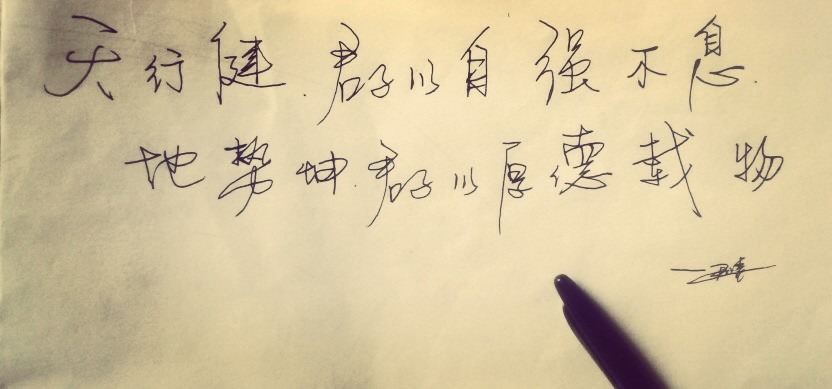 天行健.君子以自强不息.
地势坤.君子以厚德载物